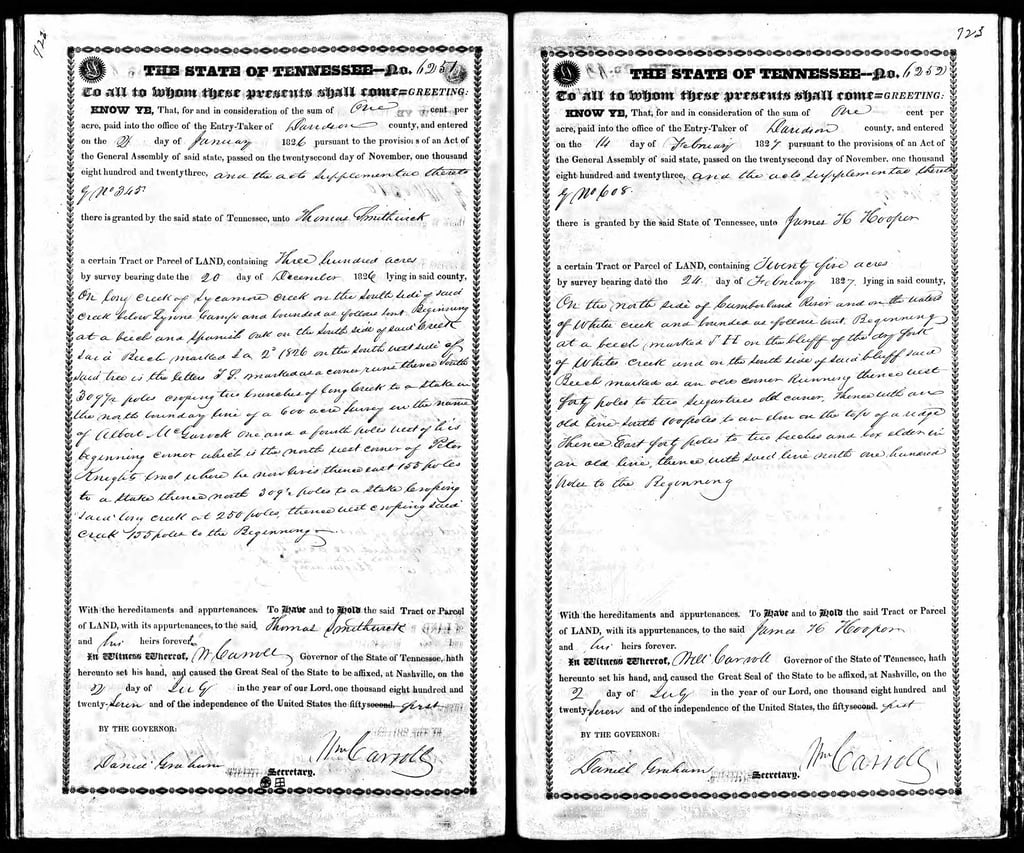 722
THE STATE OF TENNESSEE—No. 6251
To all to whom these presents shall come=GREETING:
KNOW YE, That, for and in consideration of the sum of One cent per
acre, paid into the office of the Entry-Taker of Davidson county, and entered
on the 2 day of January 1826 pursuant to the provisions of an Act of
the General Assembly of said state, passed on the twentysecond day of November, one thousand
eight hundred and twentythree, and the acts supplemental thereto
by No 345
there is granted by the said state of Tennessee, unto Thomas Smithwick
a certain Tract or Parcel of LAND, containing Three hundred acres
by survey bearing date the 20 day of December 1826 lying in said county,
On long creek of Sycamore creek on the South side of said
creek below Camp and bounded as follows tout. Beginning
at a beech and Spanish Oak on the South side of said Creek
said Beech marked Ja 2d 1826 on the south west side of
said tree is the letters T. S. marked as a corner, runs thence South
309½ poles croping two branches of long Creek to a Stake in
the north boundary line of a 600 acre Survey in the name
of Albert One and a fourth poles west of his
beginning corner which is the north west corner of Peter
Knights tract where he now lives thence east 155 poles
to a Stake thence north 309½ poles to a Stake croping
said long creek at 250 poles, thence west croping said
creek 155 poles to the Beginning
With the hereditaments and appurtenances. To Have and to Hold the said Tract or Parcel
of LAND, with its appurtenances, to the said Thomas Smithwick
and his heirs forever.
In Witness Whereof, W Carroll Governor of the State of Tennessee, hath
hereunto set his hand, and caused the Great Seal of the State to be affixed, at Nashville, on the
2 day of July in the year of our Lord, one thousand eight hundred and
twenty-seven and of the independence of the United States the fiftysecond. first
BY THE GOVERNOR:
Wm Carroll
Daniel Graham Secretary.
723
THE STATE OF TENNESSEE—No. 6252
To all to whom these presents shall come=GREETING:
KNOW YE, That, for and in consideration of the sum of One cent per
acre, paid into the office of the Entry-Taker of Davidson county, and entered
on the 14 day of February 1827 pursuant to the provisions of an Act of
the General Assembly of said state, passed on the twentysecond day of November, one thousand
eight hundred and twentythree, and the acts supplemental thereto
by No 608.
there is granted by the said State of Tennessee, unto James H Hooper
a certain Tract or Parcel of LAND, containing Twenty five acres
by survey bearing date the 24 day of February 1827 lying in said county,
On the north side of Cumberland River and on the waters
of Whites creek and bounded as follows tout. Beginning
at a beech marked J H on the bluff of the dry fork
of Whites creek and on the South side of said bluff said
Beech marked as an old corner Running thence west
forty poles to two Sugartrees old corner, Thence with an
old line South 100 poles to an elm on the top of a ridge
Thence East forty poles to two beeches and box elder in
an old line, thence with said line north one hundred
poles to the Beginning
With the hereditaments and appurtenances. To Have and to Hold the said Tract or Parcel
of LAND, with its appurtenances, to the said James H Hooper
and his heirs forever.
In Witness Whereof, Will Carroll Governor of the State of Tennessee, hath
hereunto set his hand, and caused the Great Seal of the State to be affixed, at Nashville, on the
2 day of July in the year of our Lord, one thousand eight hundred and
twenty-seven and of the independence of the United States, the fiftysecond. first
BY THE GOVERNOR:
Wm Carroll
Daniel Graham Secretary.